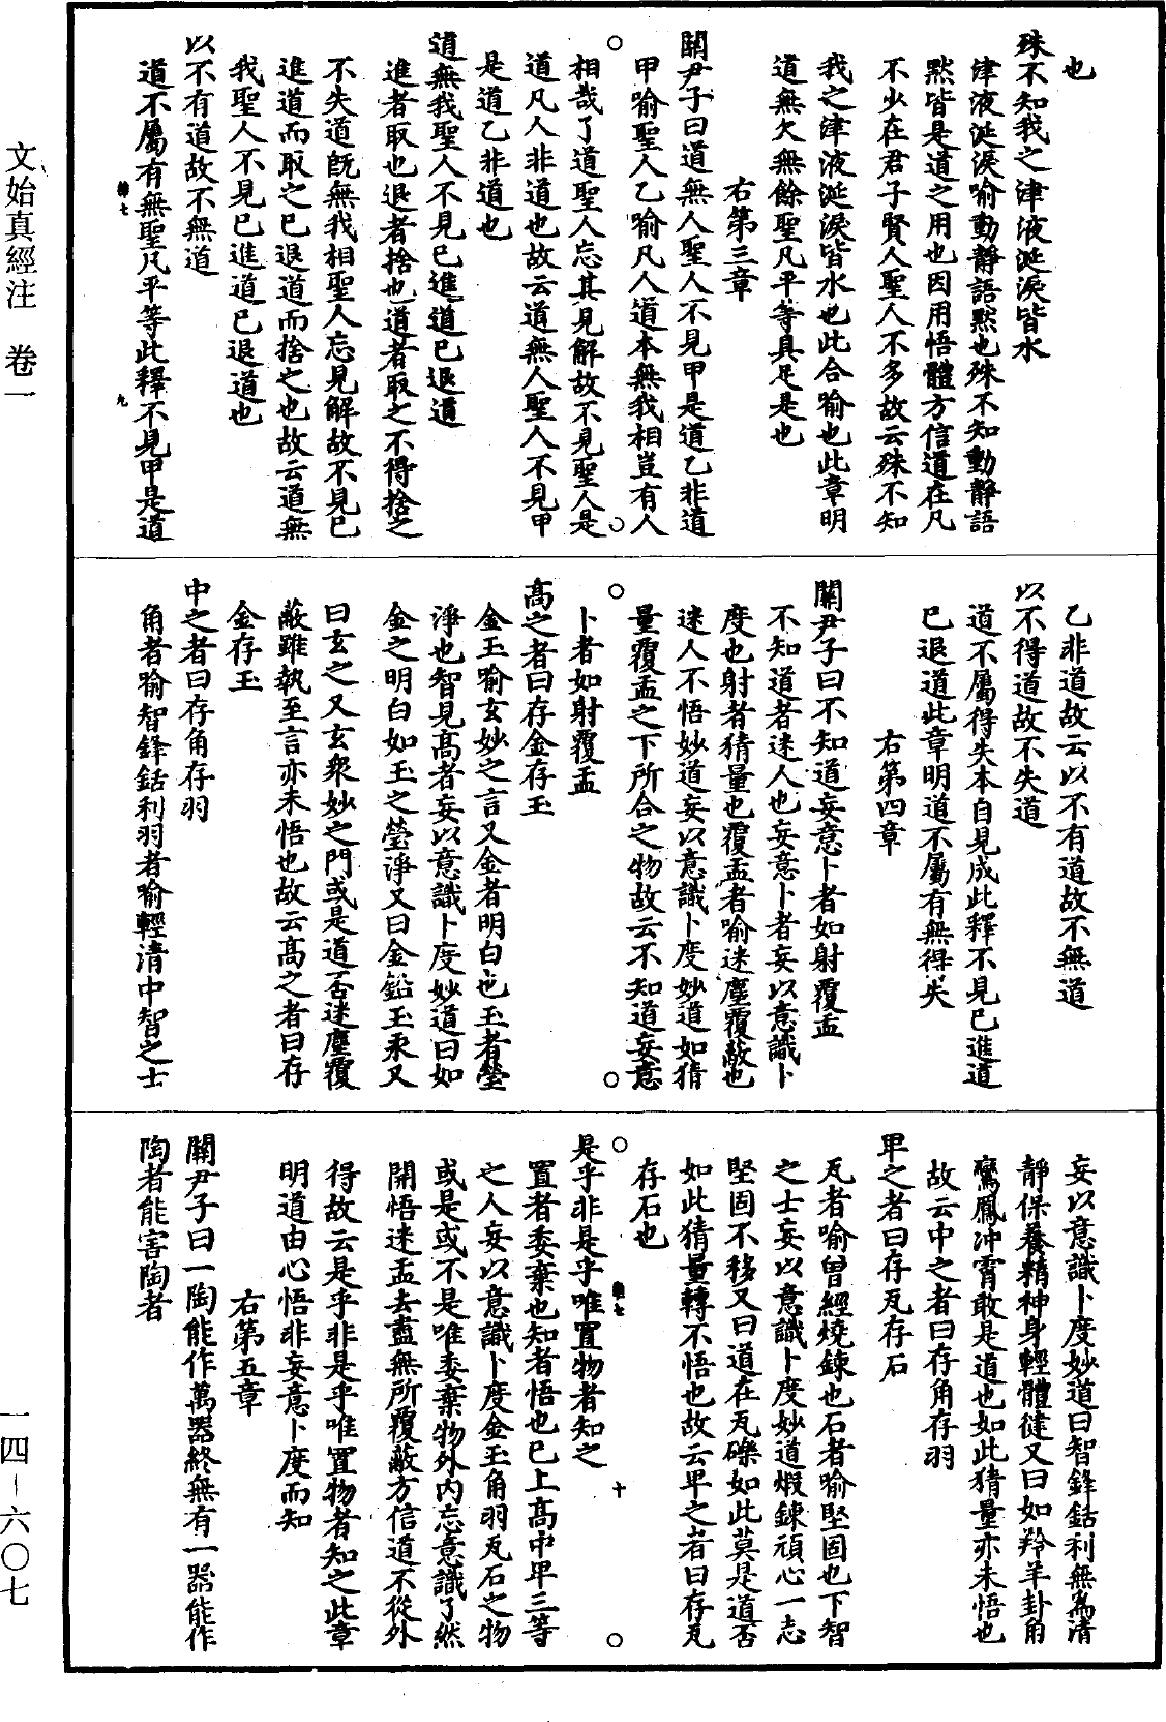 也
殊不知我之津液涎淚皆水
津液涎淚喻動靜語默也殊不知動靜語
默皆是道之用也因用悟體方信道在凡
不少在君子賢人聖人不多故云殊不知
我之津液涎淚皆水也此合喻也此章明
道無欠無餘聖凡平等具足是也
右第三章
關尹子曰道無人聖人不見甲是道乙非道
甲喻聖人乙喻凡人道本無我相豈有人
相哉了道聖人忘其見解故不見聖人是
道凡人非道也故云道無人聖人不見甲
是道乙非道也
道無我聖人不見已進道已退道
進者取也退者捨也道者取之不得捨之
不失道既無我相聖人忘見解故不見已
進道而取之已退道而捨之也故云道無
我聖人不見已進道已退道也
以不有道故不無道
道不屬有無聖凡平等此釋不見甲是道
乙非道故云以不有道故不無道
以不得道故不失道
道不屬得失本自見成此釋不見已進道
已退道此章明道不屬有無得失
右第四章
關尹子曰不知道妄意卜者如射覆盂
不知道者迷人也妄意卜者妄以意識卜
度也射者猜量也覆盂者喻迷塵覆蔽也
迷人不悟妙道妄以意識卜度妙道如猜
量覆盂之下所合之物故云不知道妄意
卜者如射覆盂
高之者曰存金存玉
金玉喻玄妙之言又金者明白也玉者瑩
淨也智見高者妄以意識卜度妙道曰如
金之明白如玉之瑩淨又曰金鉛玉汞又
曰玄之又玄衆妙之門或是道否迷塵覆
蔽雖執至言亦未悟也故云高之者曰存
金存玉
中之者曰存角存羽
角者喻智鋒銛利羽者喻輕清中智之士
妄以意識卜度妙道曰智鋒銛利無為清
靜保養精神身輕體徤又曰如羚羊卦角
鸞鳳冲霄敢是道也如此猜量亦未悟也
故云中之者曰存角存羽
卑之者曰存瓦存石
瓦者喻曾經燒鍊也石者喻堅固也下智
之士妄以意識卜度妙道煆鍊頑心一志
堅固不移又曰道在瓦礫如此莫是道否
如此猜量轉不悟也故云卑之者曰存瓦
存石也
是乎非是乎唯置物者知之
置者委棄也知者悟也已上高中卑三等
之人妄以意識卜度金玉角羽瓦石之物
或是或不是唯委棄物外內忘意識了然
開悟迷盂去盡無所覆蔽方信道不從外
得故云是乎非是乎唯置物者知之此章
明道由心悟非妄意卜度而知
右第五章
關尹子曰一陶能作萬器終無有一器能作
陶者能害陶者
文始真經注 卷一
一四—六〇七
九
十